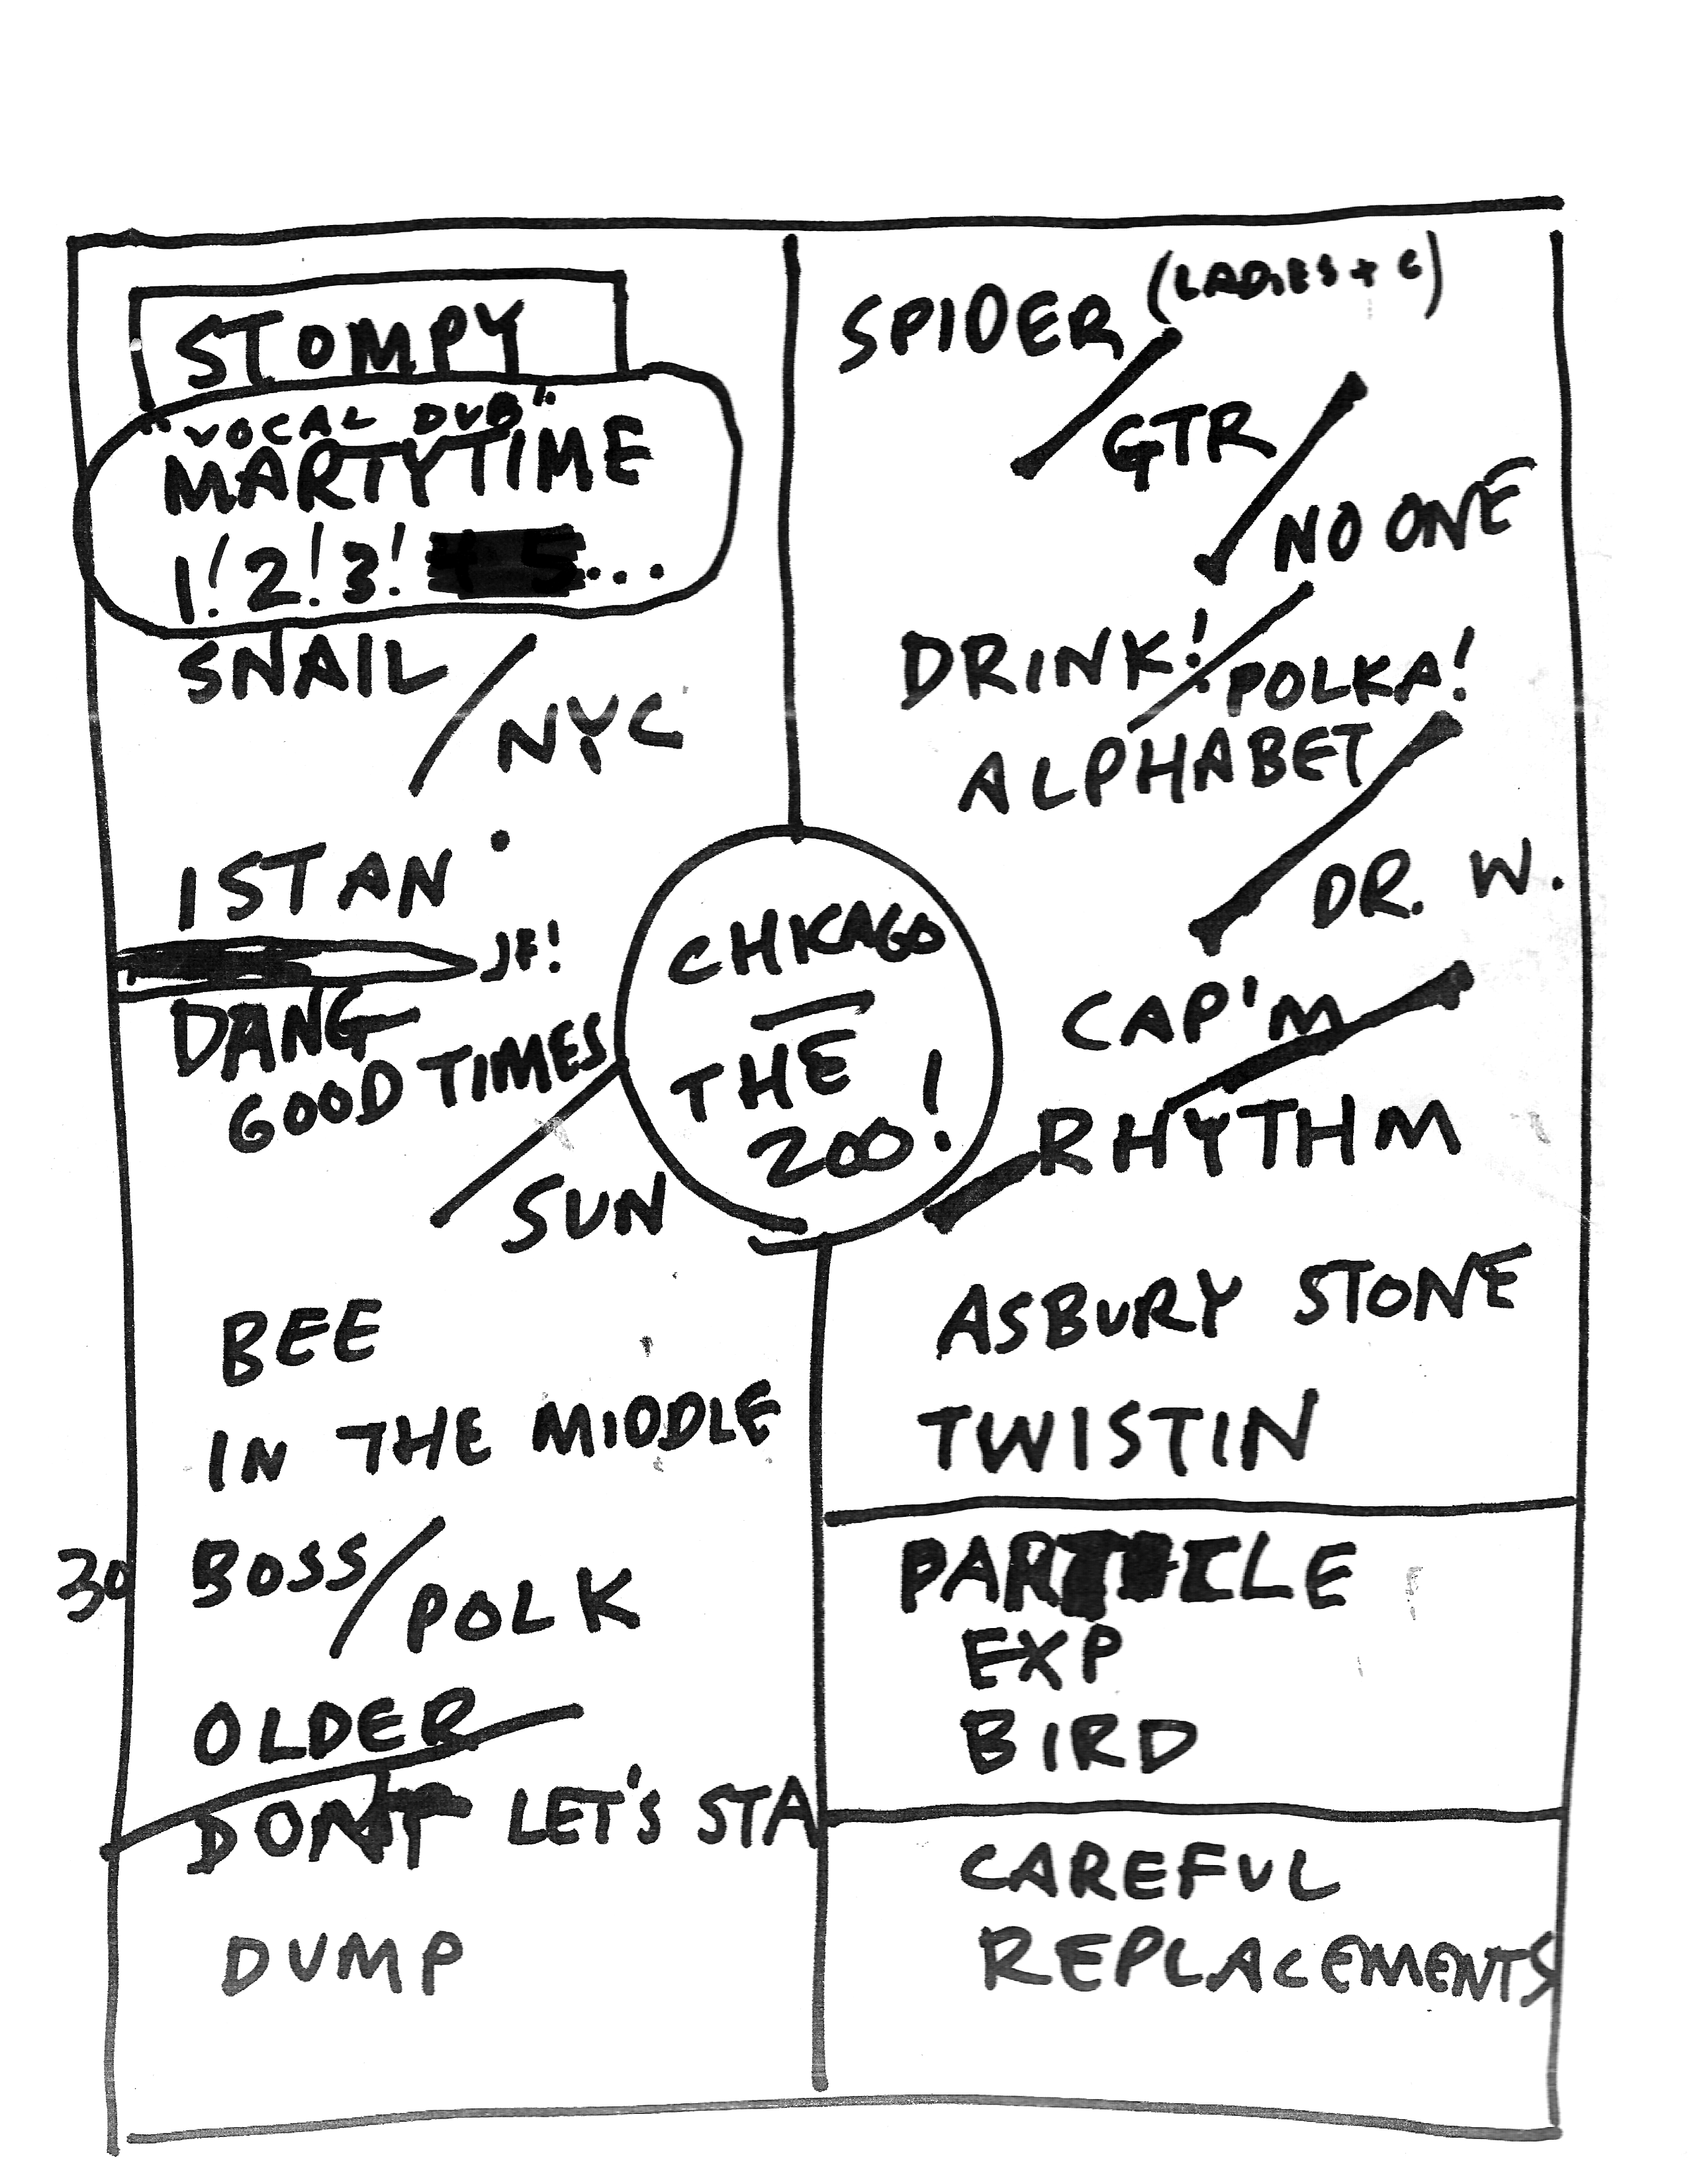 STOMPY
"VOCAL DUB"
MARTYTIME
1! 2! 3! 4 5...
SNAIL / NYC
ISTAN
JF!
DANG
GOOD TIMES / SUN
BEE
IN THE MIDDLE
30 BOSS / POLK
OLDER
DON'T LET'S STA
DUMP
CHICAGO
THE
200!
SPIDER (LADIES + C)
/ GTR
/ NO ONE
DRINK! / POLKA!
ALPHABET
/ DR. W.
CAP'M
/ RHYTHM
ASBURY STONE
TWISTIN
PARTICLE
EXP
BIRD
CAREFUL
REPLACEMENTS